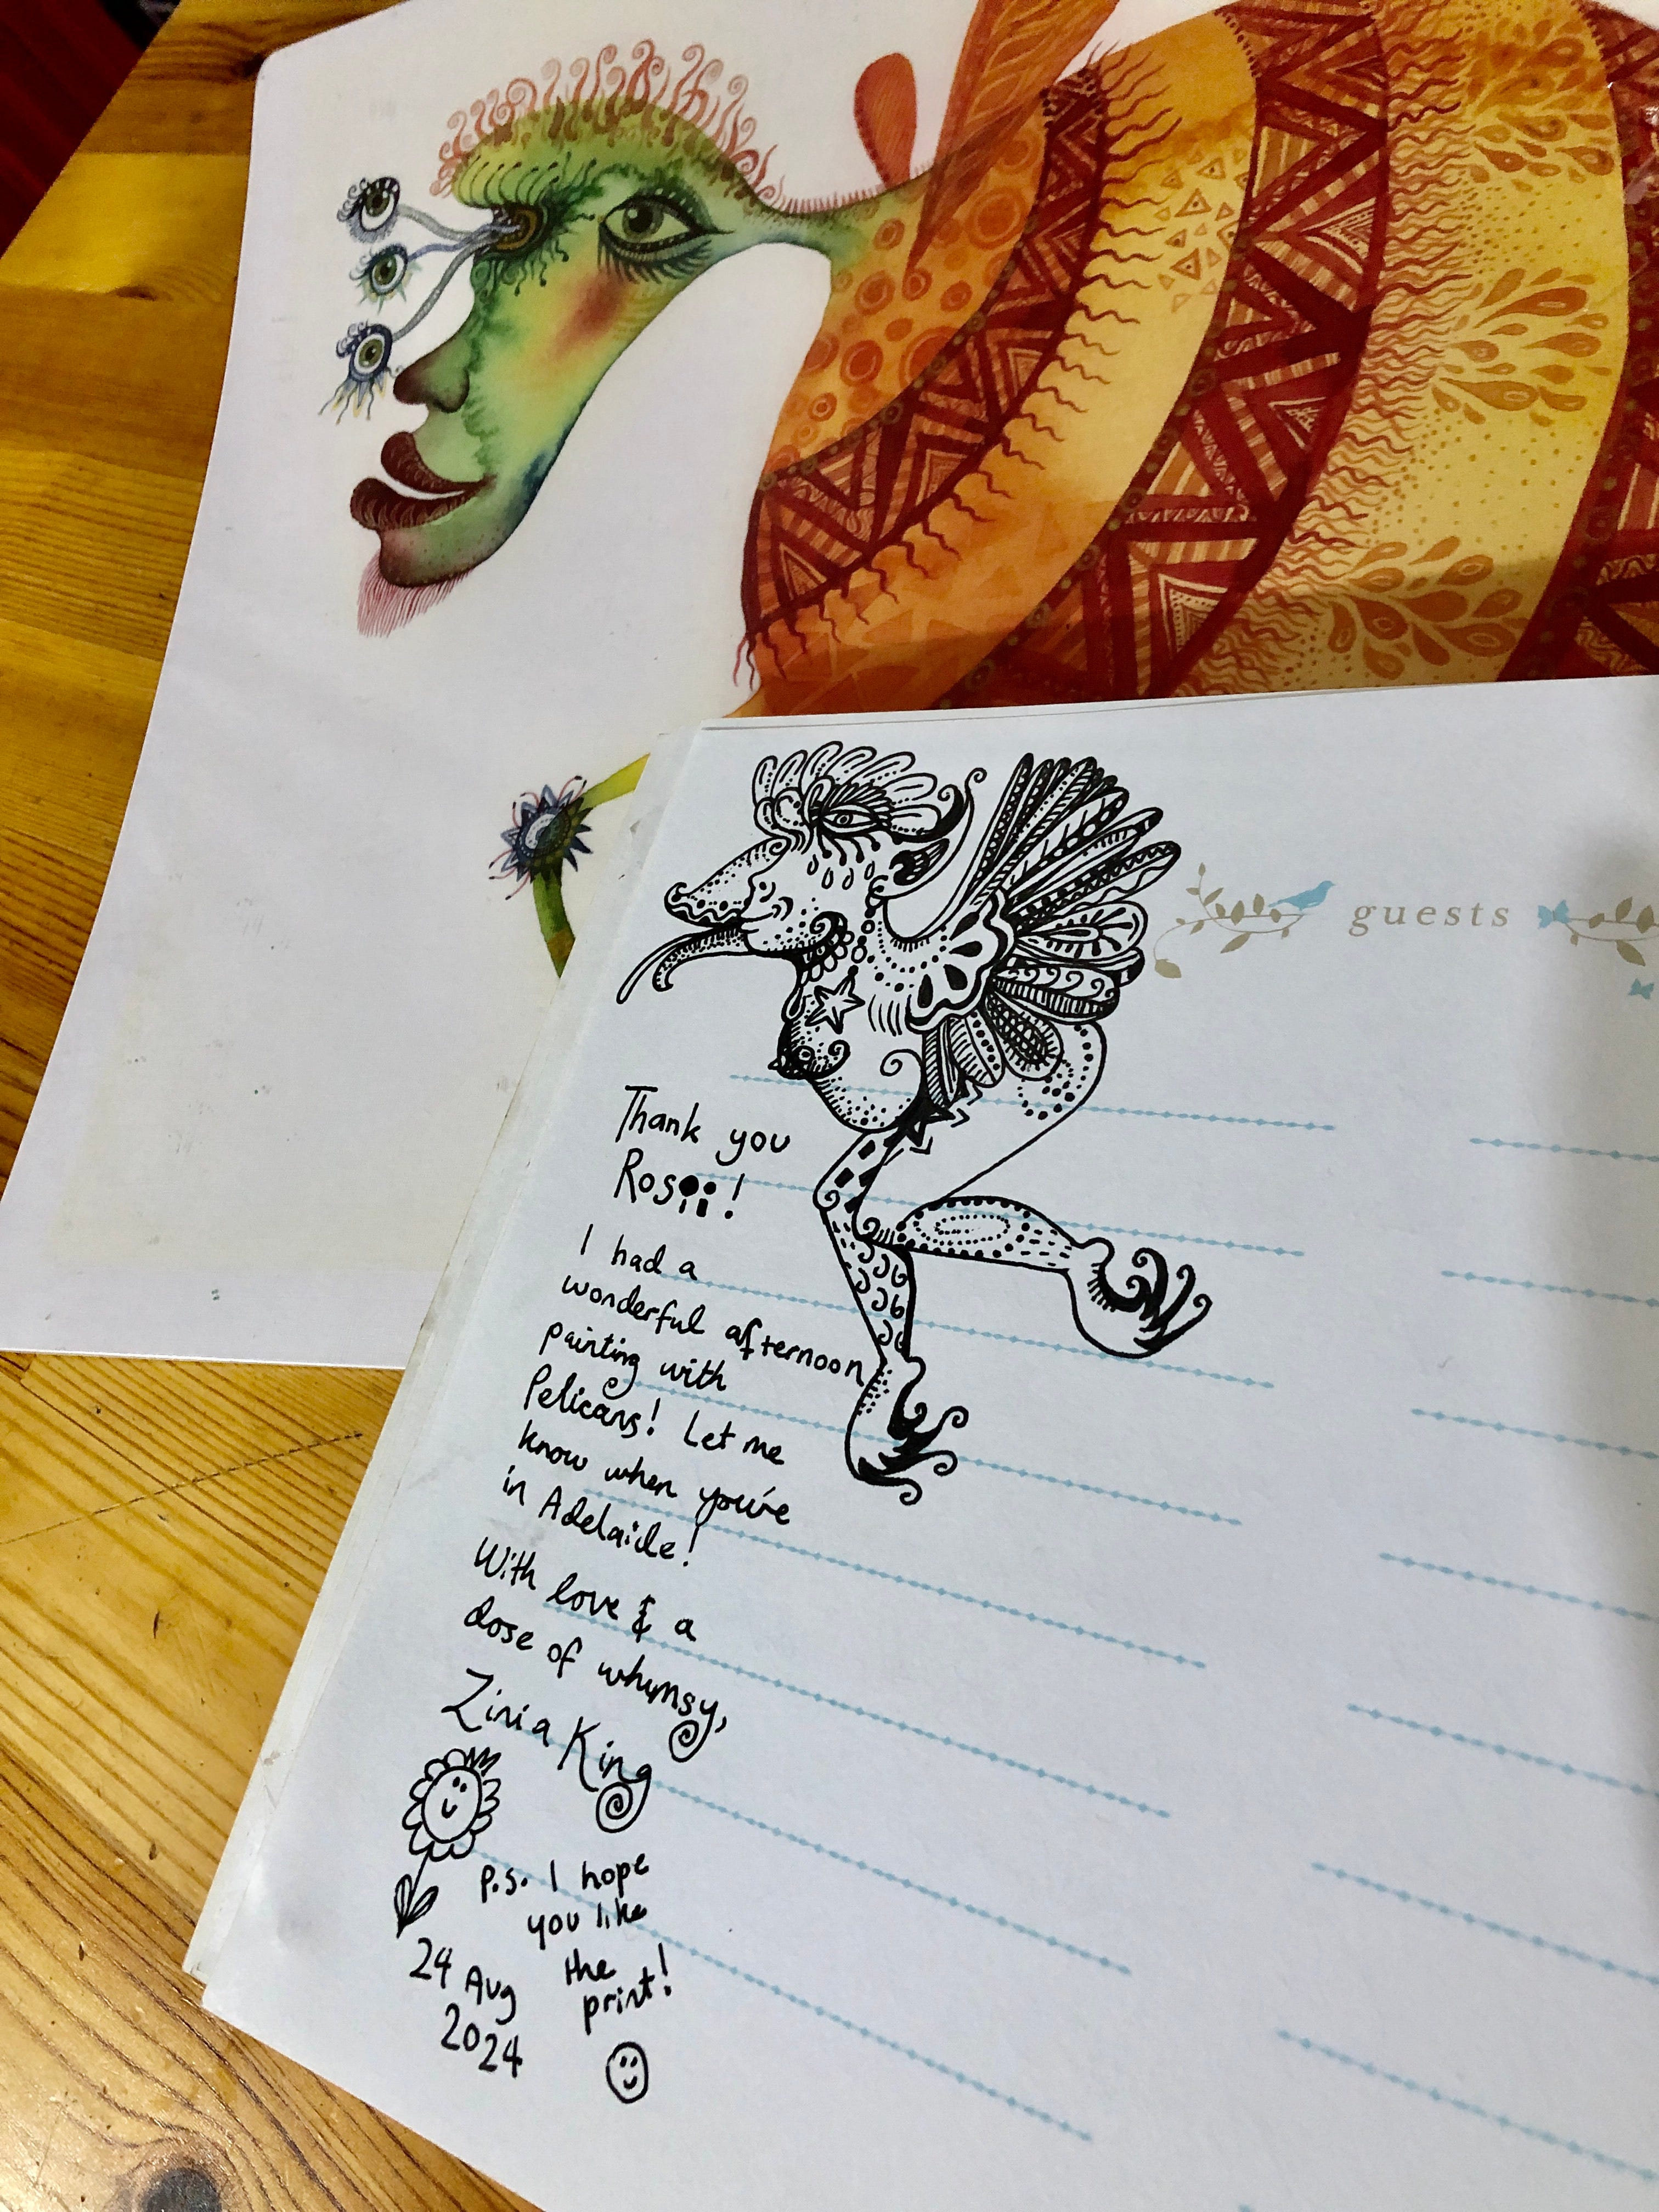 guests
Thank you
Rosii!
I had a
wonderful afternoon
painting with
Pelicans! Let me
know when you're
in Adelaide!
With love & a
dose of whimsy,
Zinia King
P.S. I hope
you like
the
print!
24 Aug
2024